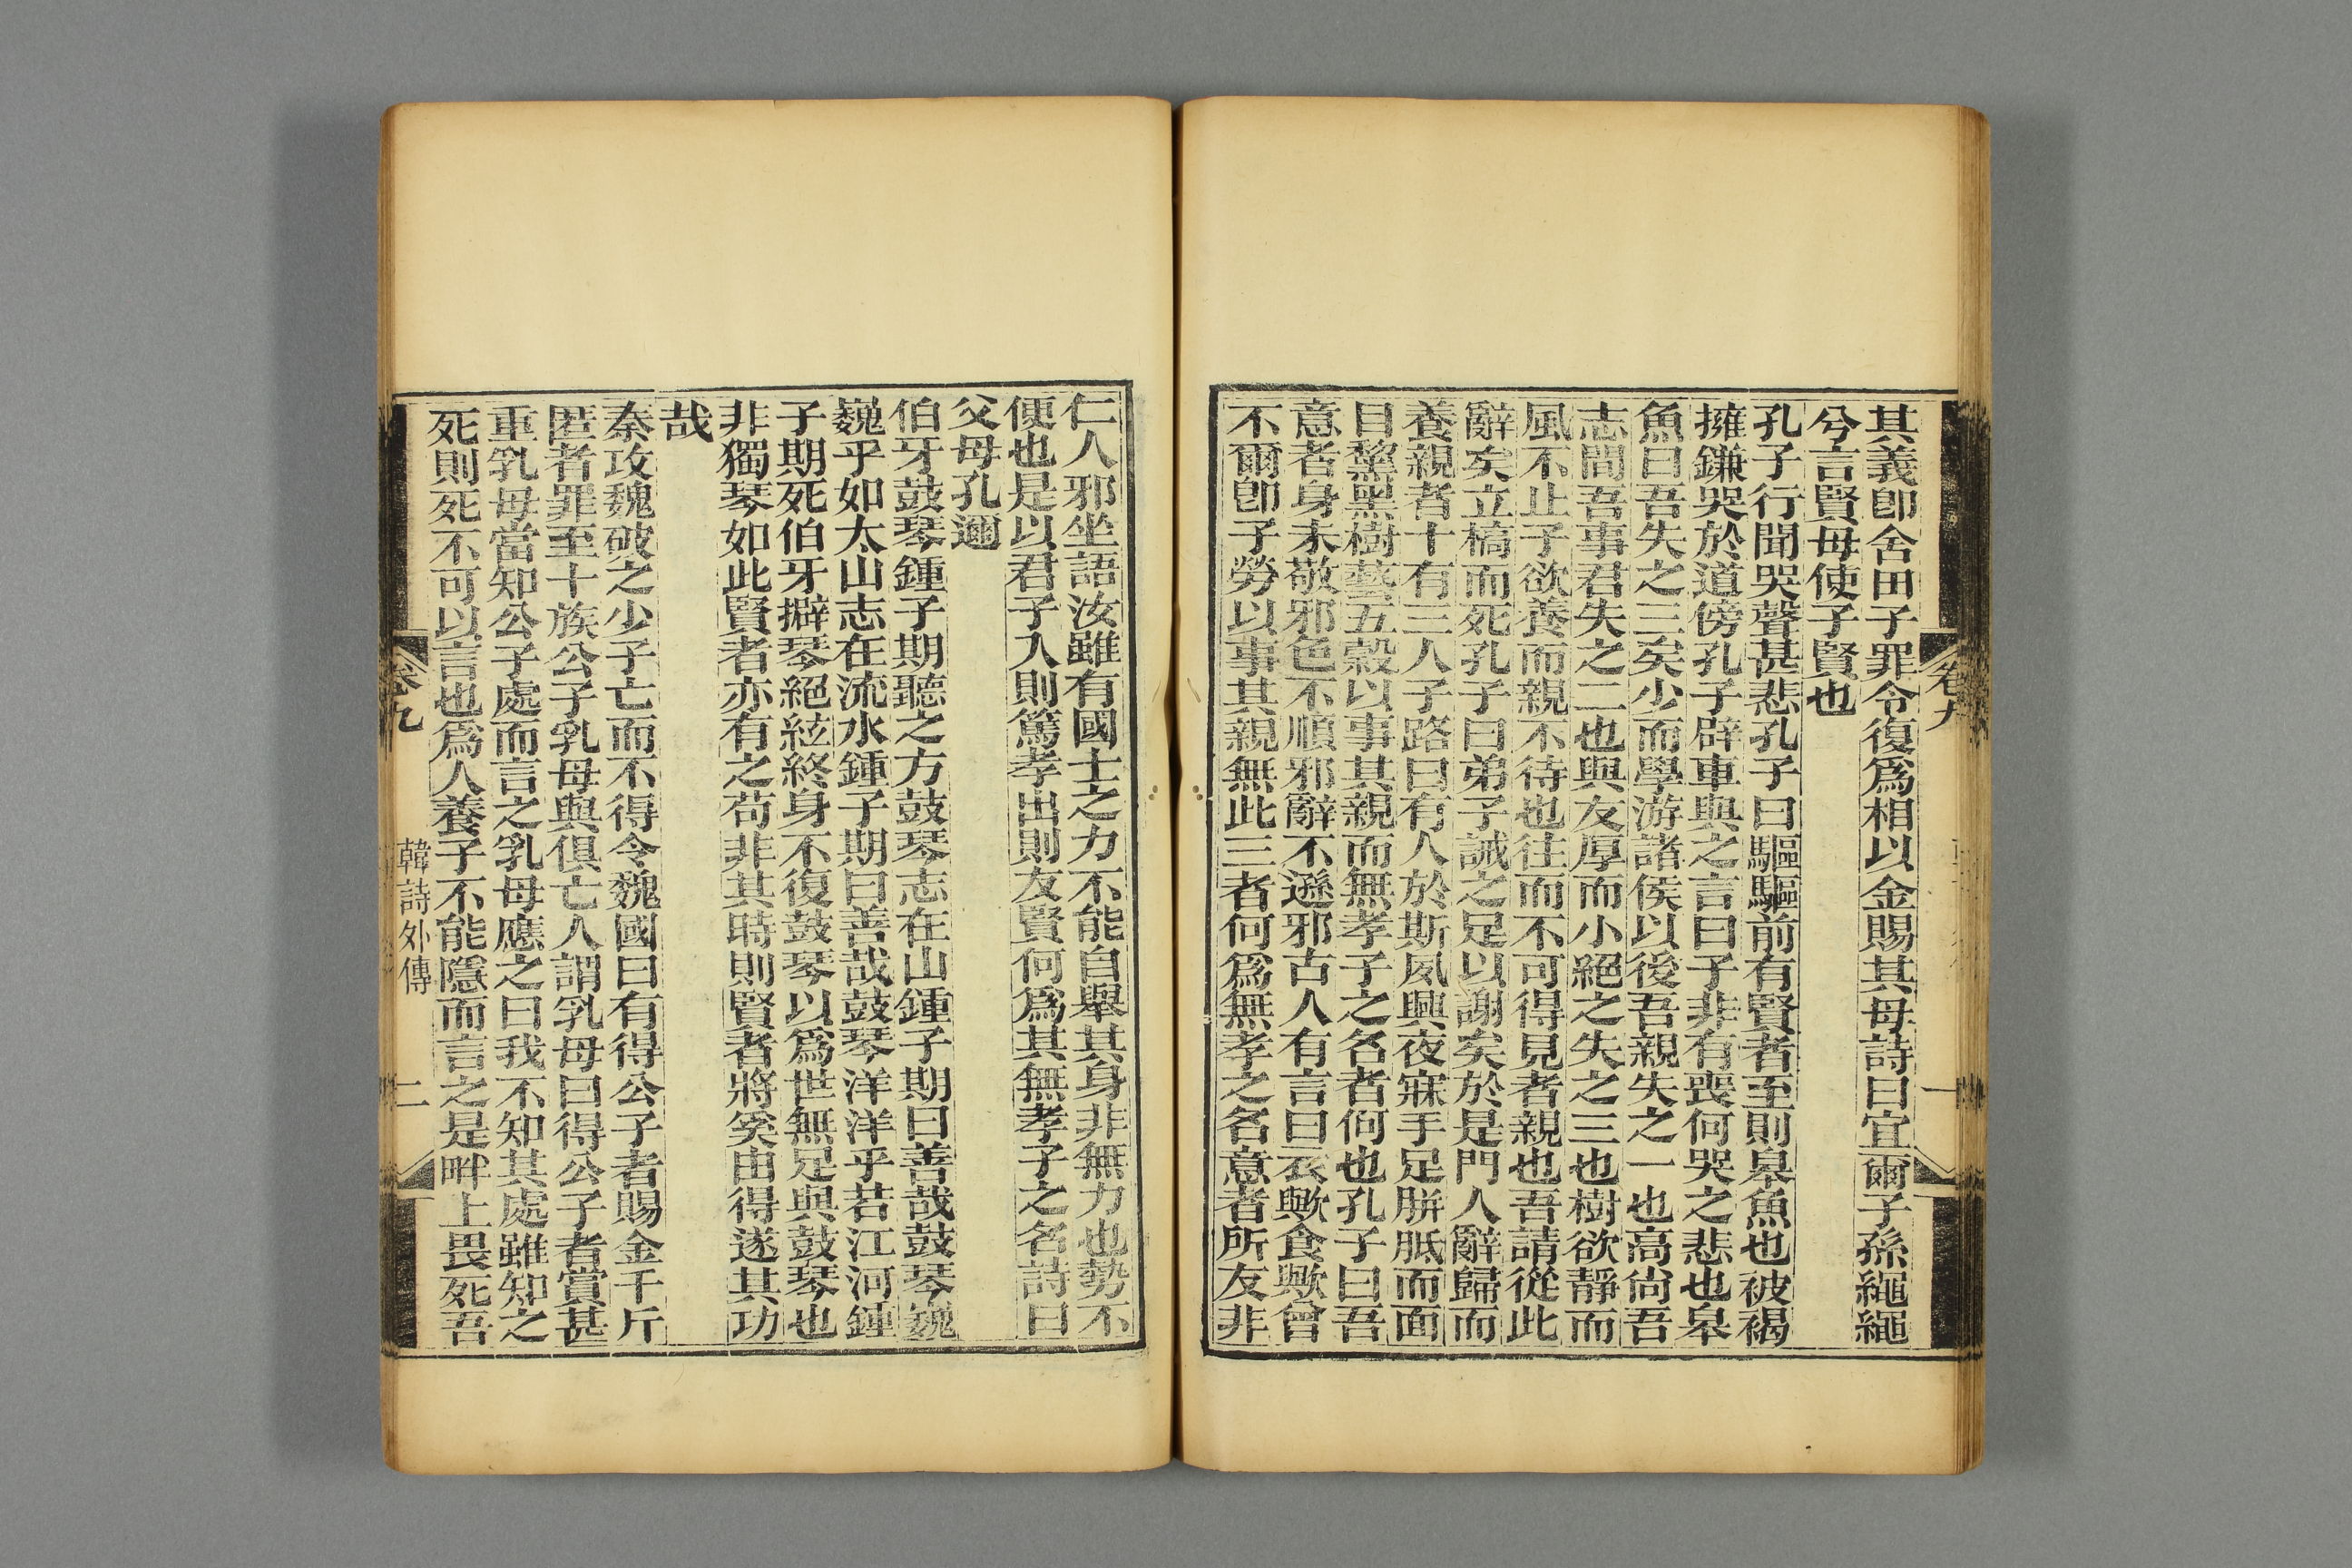 其義卽舍田子罪令復爲相以金賜其母詩曰宜爾子孫繩繩
兮言賢母使子賢也
孔子行聞哭聲甚悲孔子曰驅驅前有賢者至則皋魚也被褐
擁鎌哭於道傍孔子辟車與之言曰子非有喪何哭之悲也皋
魚曰吾失之三矣少而學游諸侯以後吾親失之一也高尙吾
志間吾事君失之二也與友厚而小絕之失之三也樹欲靜而
風不止子欲養而親不待也往而不可得見者親也吾請從此
辭矣立槁而死孔子曰弟子誡之足以謝矣於是門人辭歸而
養親者十有三人子路曰有人於斯夙興夜寐手足胼胝而面
目黧黑樹藝五榖以事其親而無孝子之名者何也孔子曰吾
意者身未敬邪色不順邪辭不遜邪古人有言曰衣歟食歟曾
不爾卽子勞以事其親無此三者何爲無孝之名意者所友非
卷九
一
仁人邪坐語汝雖有國士之力不能自舉其身非無力也勢不
便也是以君子入則篤孝出則友賢何爲其無孝子之名詩曰
父母孔邇
伯牙鼓琴鍾子期聽之方鼓琴志在山鍾子期曰善哉鼓琴巍
巍乎如太山志在流水鍾子期曰善哉鼓琴洋洋乎若江河鍾
子期死伯牙擗琴絕絃終身不復鼓琴以爲世無足與鼓琴也
非獨琴如此賢者亦有之苟非其時則賢者將奚由得遂其功
哉
秦攻魏破之少子亡而不得令魏國曰有得公子者賜金千斤
匿者罪至十族公子乳母與俱亡人謂乳母曰得公子者賞甚
重乳母當知公子處而言之乳母應之曰我不知其處雖知之
死則死不可以言也爲人養子不能隱而言之是畔上畏死吾
卷九
韓詩外傳
二